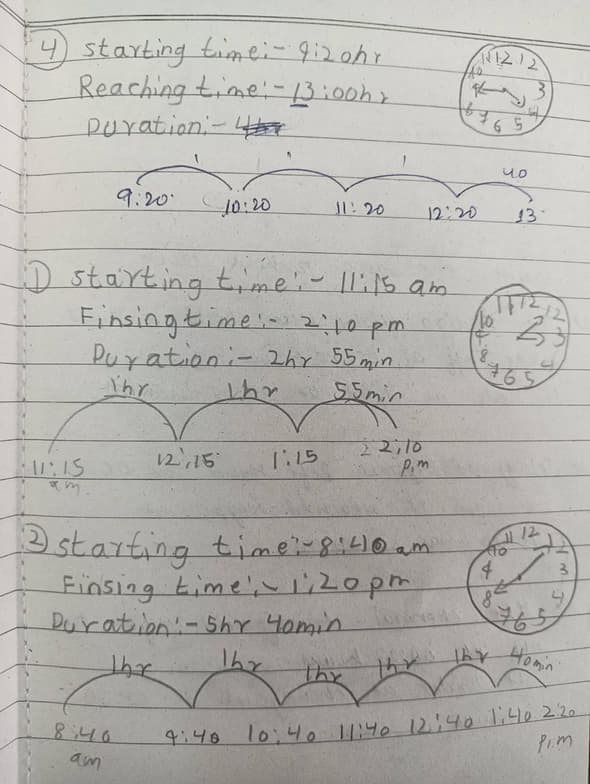 4 starting time:- 9:20hr
Reaching time:- 13:00hr
Duration:-
11 12 12
10 9 3
8 7 6 5 4
1 1 1 40
9:20 10:20 11:20 12:20 13
1 starting time:- 11:15 am
Finsing time:- 2:10 pm
Duration:- 2hr 55min
11 12 12
10 3
8 7 6 5 4
1hr 1hr 55min
11:15 am 12:15 1:15 2 2:10 p.m
2 starting time:- 8:40 am
Finsing time:- 1:20 pm
Duration:- 5hr 40min
11 12 1 2
10 3
8 7 6 5 4
1hr 1hr 1hr 1hr 1hr 40min
8:40 am 9:40 10:40 11:40 12:40 1:40 2:20 p.m